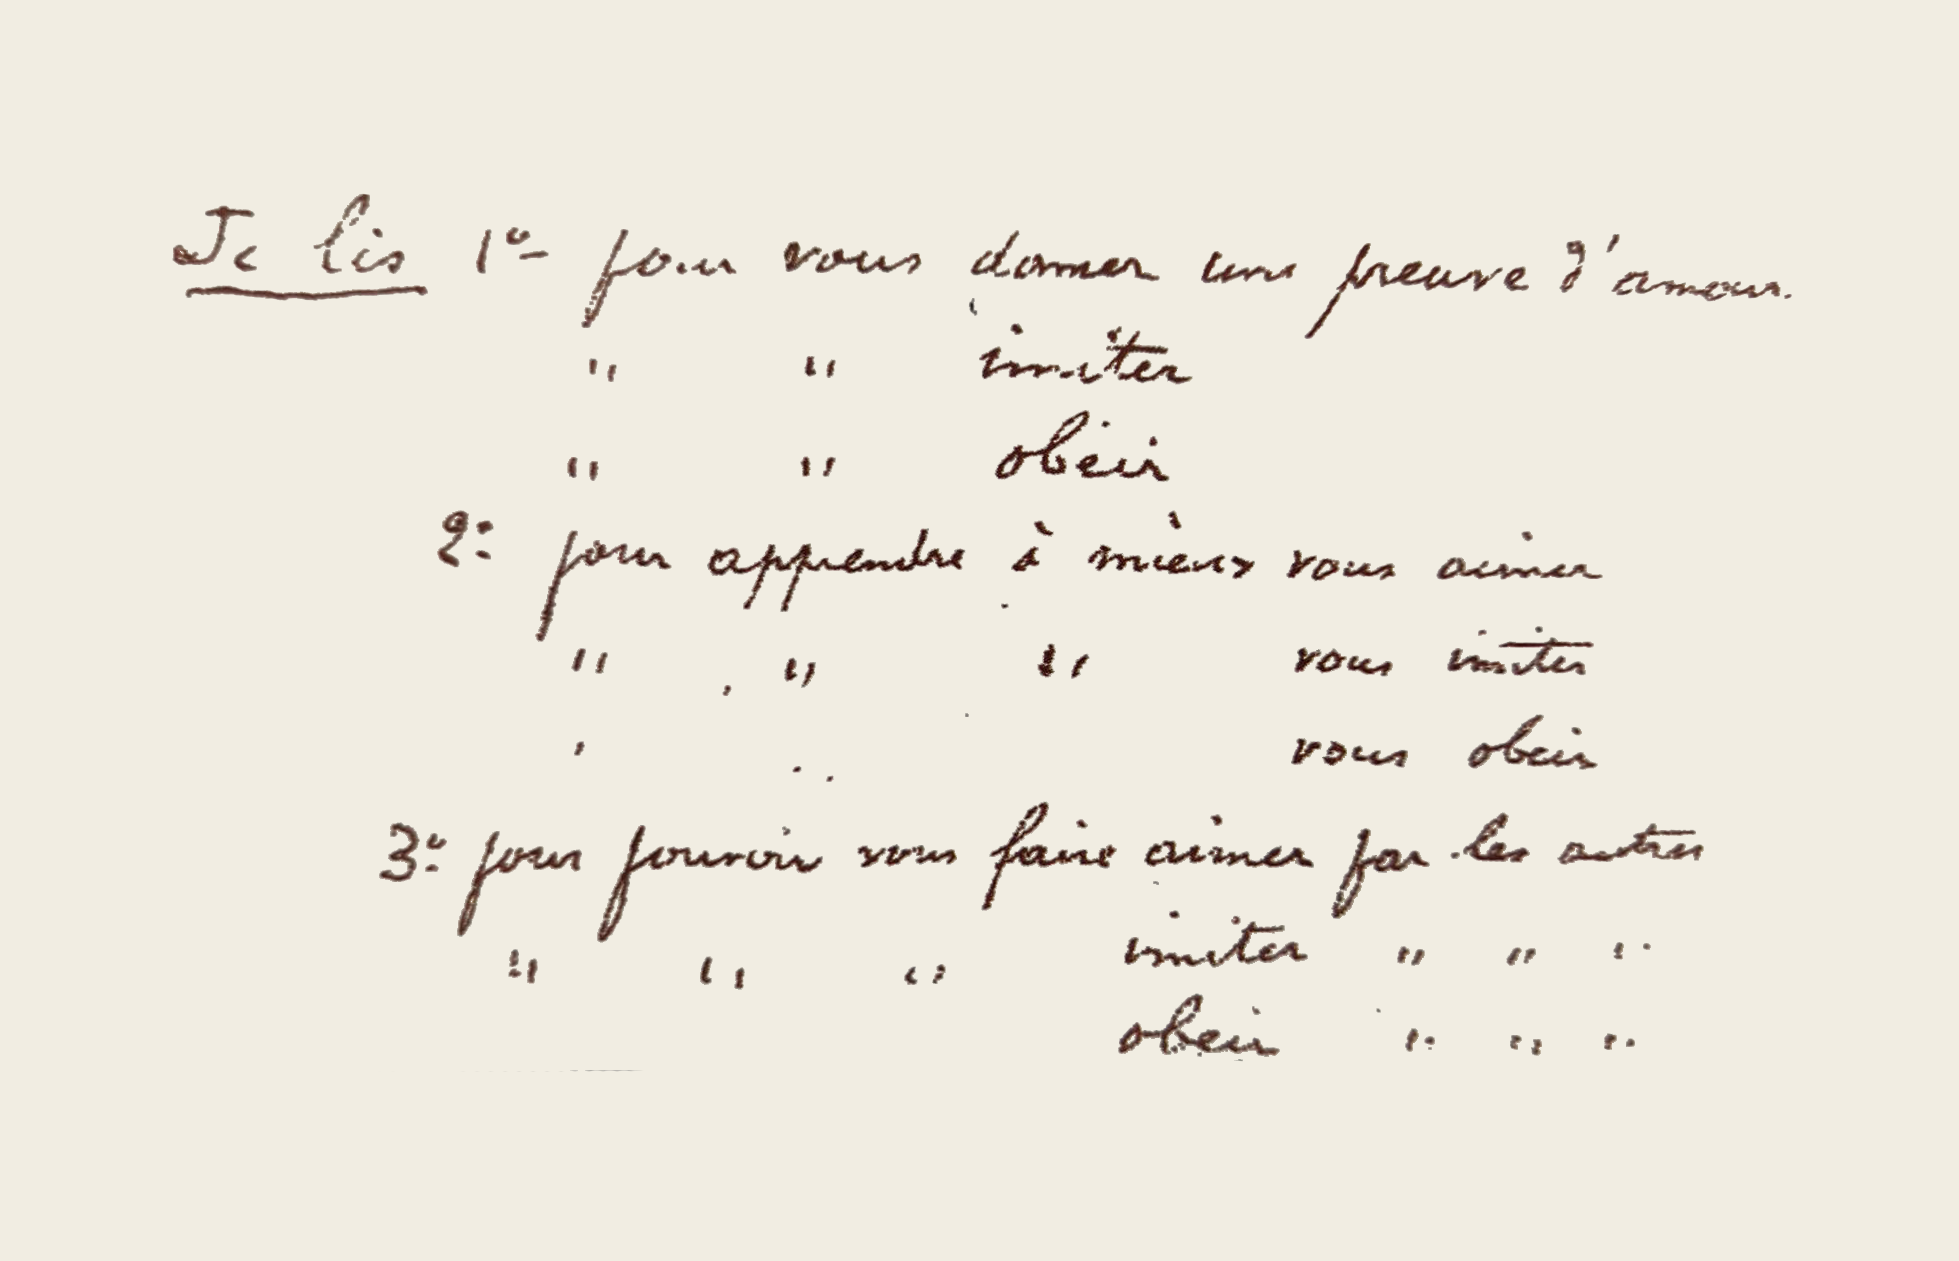 Je lis 1º pour vous donner une preuve d'amour.
" " imiter
" " obéir
2º pour apprendre à mieux vous aimer
" " " vous imiter
" " vous obéir
3º pour pouvoir vous faire aimer par les autres
" " " imiter " " "
obéir " " "